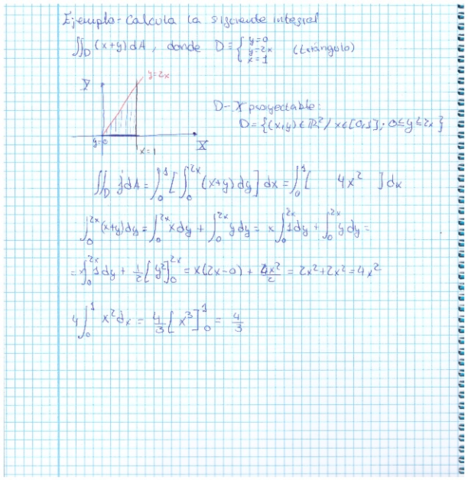 Ejemplo- Calcula la siguiente integral
∬_D (x+y)dA, donde D≡{ y=0 y=2x x=1 (triángulo)
Y
y=2x
y=0
x=1
X
D- X proyectable:
D={(x,y)∈ℝ²/ x∈[0,1]; 0≤y≤2x}
∬_D f dA = ∫_0^1 [∫_0^{2x} (x+y)dy] dx = ∫_0^1 [ 4x² ] dx
∫_0^{2x} (x+y)dy = ∫_0^{2x} x dy + ∫_0^{2x} y dy = x∫_0^{2x} 1dy + ∫_0^{2x} y dy =
= x∫_0^{2x} 1dy + 1/2 [y²]_0^{2x} = x(2x-0) + 4x²/2 = 2x²+2x² = 4x²
4∫_0^1 x² dx = 4/3 [x³]_0^1 = 4/3